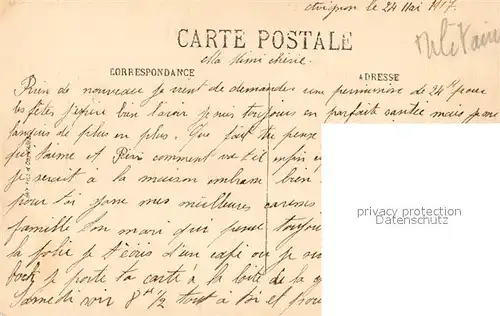 Avignon le 24 Mai 1917.
Militaire
CARTE POSTALE
Ma Mimi chérie.
CORRESPONDANCE
ADRESSE
Rien de nouveau je vient de demander une permission de 24 H pour
les fêtes j'espère bien l'avoir je suis toujours en parfaite santée mais je me
languis de plus en plus. Que fait tu pense
qui t'aime et Riri comment va t'il enfin
je serait à la maison bien
pour toi mes meilleures caresses
famille ton mari qui pense toujours
la folie je t'écris d'un café ou je
bock je porte ta carte à la boite de la
Samedi soir 8 H 1/2 tout à toi et pour
privacy protection
Datenschutz